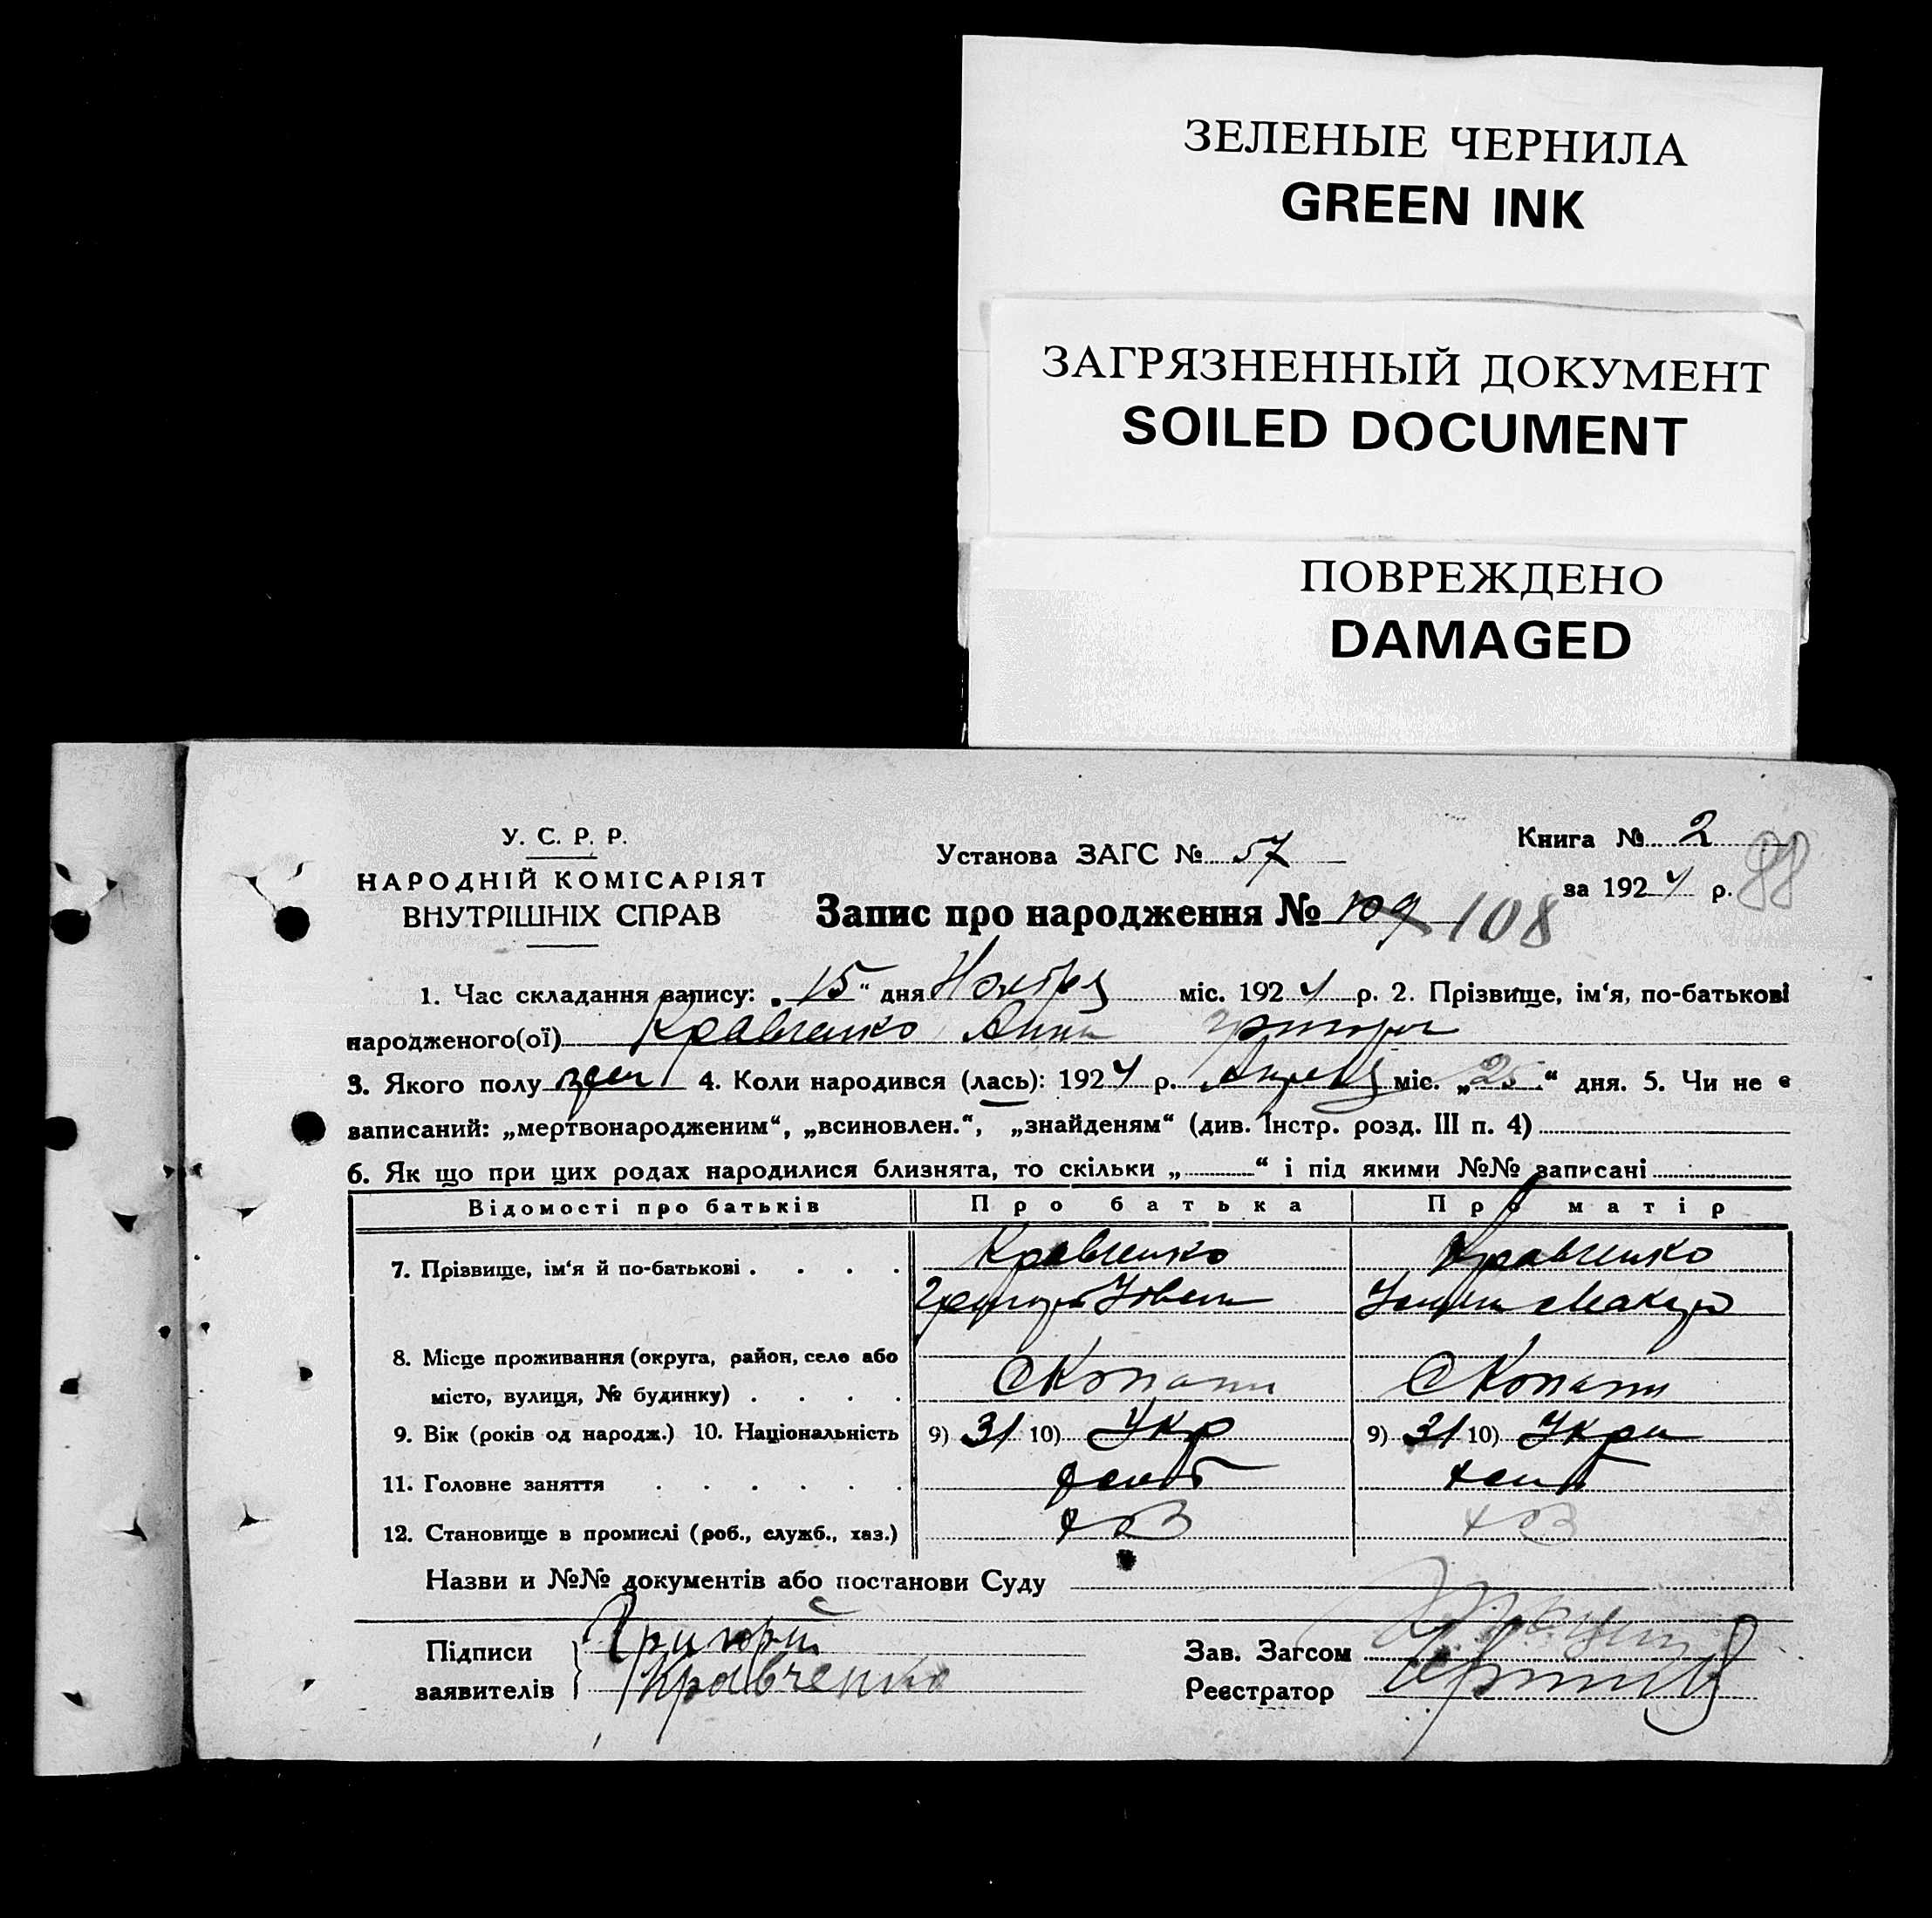 ЗЕЛЕНЫЕ ЧЕРНИЛА
GREEN INK
ЗАГРЯЗНЕННЫЙ ДОКУМЕНТ
SOILED DOCUMENT
ПОВРЕЖДЕНО
DAMAGED
У. С. Р. Р.
НАРОДНІЙ КОМІСАРІЯТ
ВНУТРІШНІХ СПРАВ
Установа ЗАГС № 57
Книга № 2
за 1924 р. 88
Запис про народження № 109 108
1. Час складання запису: „15“ дня Ноября міс. 1924 р. 2. Прізвище, ім‘я, по-батькові
народженого(ої) Кравченко Анна Григорь
3. Якого полу жен 4. Коли народився (лась): 1924 р. Апреля міс. „25“ дня. 5. Чи не є
записаний: „мертвонародженим“, „всиновлен.“, „знайденям“ (див. Інстр. розд. III п. 4)
6. Як що при цих родах народилися близнята, то скільки „ “ і під якими №№ записані
Відомості про батьків Про батька Про матір
7. Прізвище, ім‘я й по-батькові . . . . Кравченко Кравченко
Григорь
8. Місце проживання (округа, район, село або
місто, вулиця, № будинку) . . . . С Копани С Копани
9. Вік (років од народж.) 10. Національність 9) 31 10) Укр 9) 31 10) Укра
11. Головне заняття . . . . . .
12. Становище в промислі (роб., служб., хаз.)
Назви и №№ документів або постанови Суду
Підписи
заявителів
Григорий
Кравченко
Зав. Загсом
Реєстратор